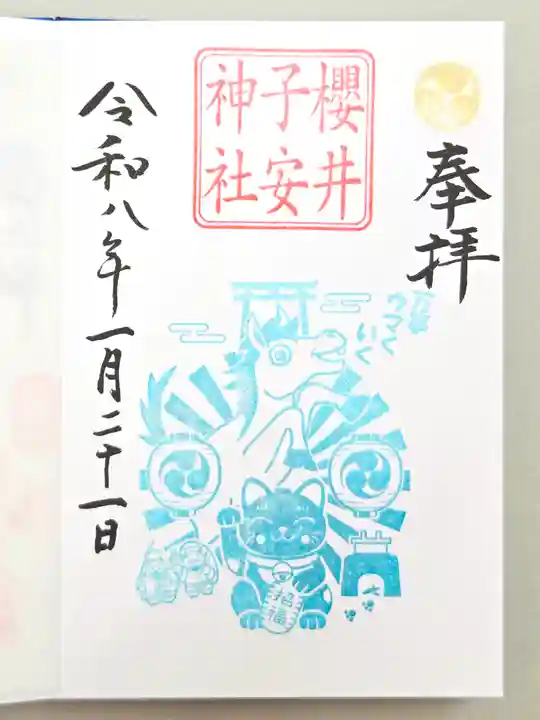 奉拝
万事
ウマく
いく
櫻井
子安
神社
招福
令和八年一月二十一日